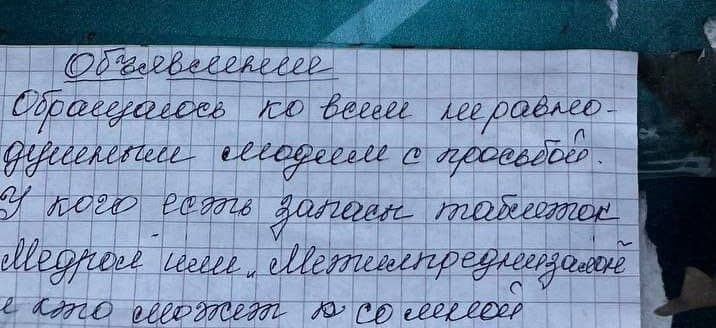 Объявление
Обращаюсь ко всем неравно-
душным людям с просьбой.
У кого есть запасы таблеток
Медрол" или "Метилпреднизалон"
и кто может со мной